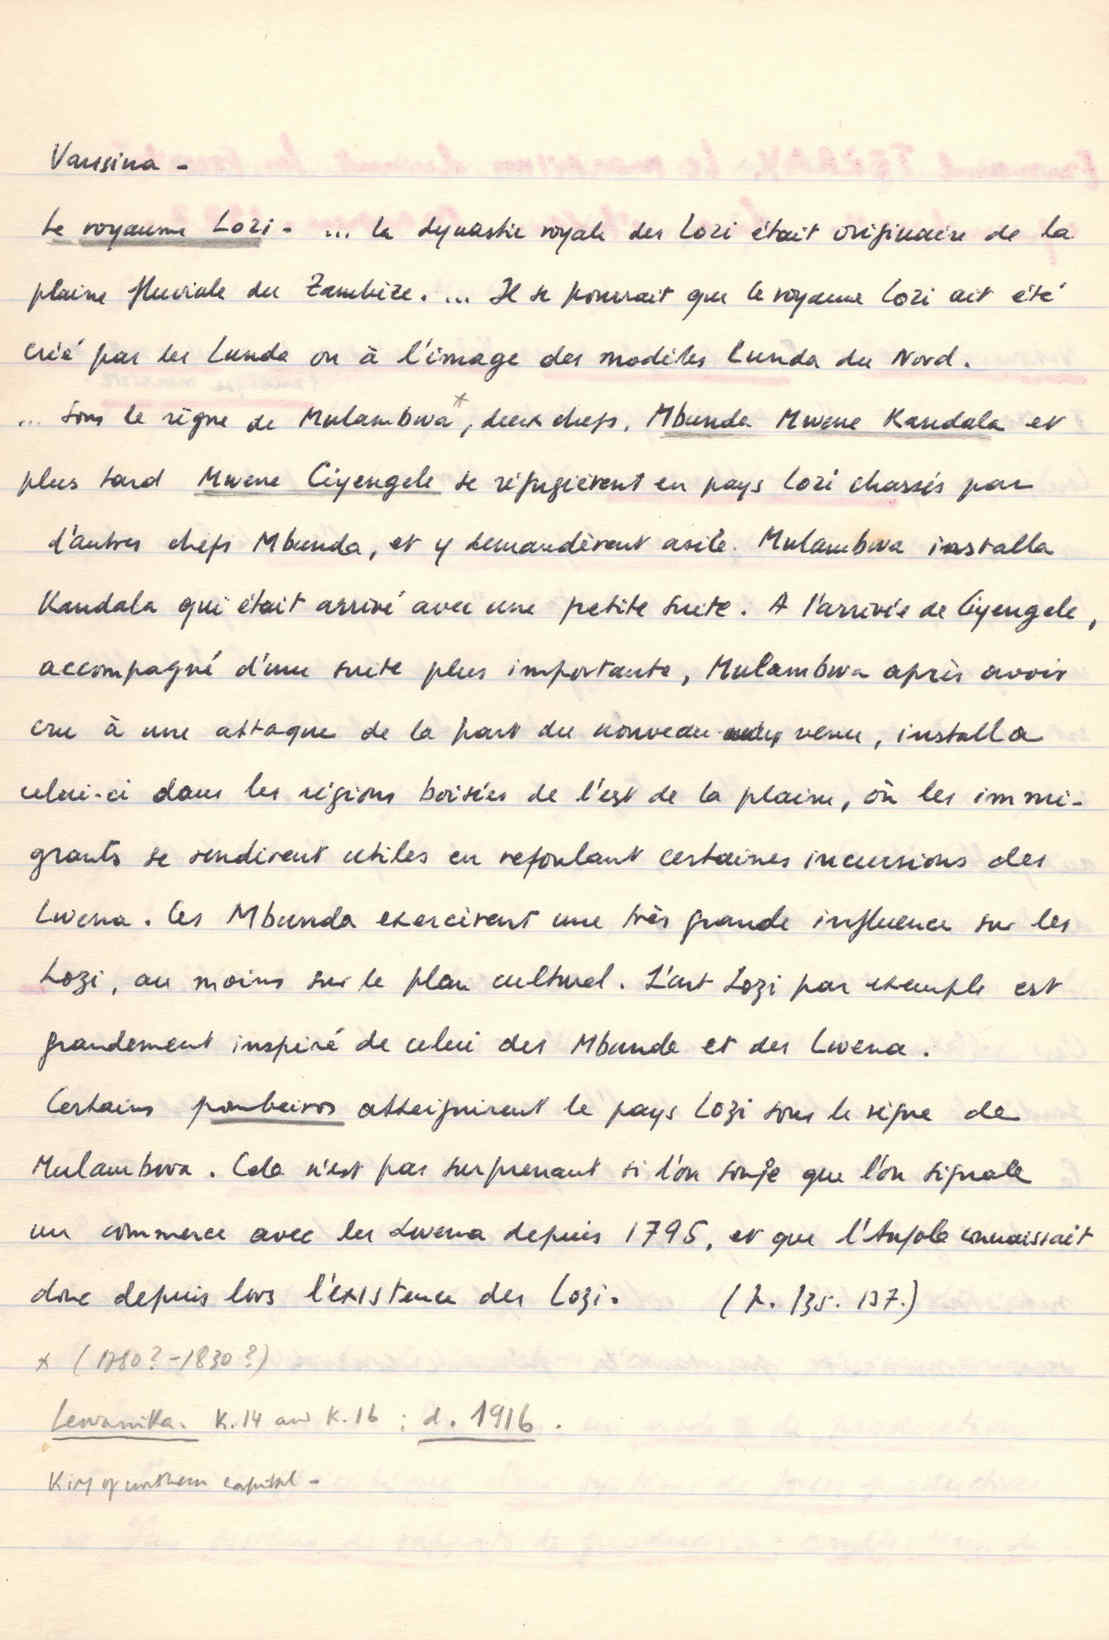 Vansina -
Le royaume Lozi - ... la dynastie royale des Lozi était originaire de la
plaine fluviale du Zambèze. ... Il se pourrait que le royaume Lozi ait été
créé par les Lunda ou à l'image des modèles Lunda du Nord.
... Sous le règne de Mulambwa*, deux chefs, Mbunda Mwene Kandala et
plus tard Mwene Ciyengele se réfugièrent en pays Lozi chassés par
d'autres chefs Mbunda, et y demandèrent asile. Mulambwa installa
Kandala qui était arrivé avec une petite suite. A l'arrivée de Ciyengele,
accompagné d'une suite plus importante, Mulambwa après avoir
cru à une attaque de la part du nouveau venu, installa
celui-ci dans les régions boisées de l'est de la plaine, où les immi-
grants se rendirent utiles en refoulant certaines incursions des
Lwena. Ces Mbunda exercèrent une très grande influence sur les
Lozi, au moins sur le plan culturel. L'art Lozi par exemple est
grandement inspiré de celui des Mbunda et des Lwena.
Certains pombeiros atteignirent le pays Lozi sous le règne de
Mulambwa. Cela n'est pas surprenant si l'on songe que l'on signale
un commerce avec les Lwena depuis 1795, et que l'Angola connaissait
donc depuis lors l'existence des Lozi. (p. 135. 137.)
x (1780?-1830?)
Lewanika. K.14 and K.16 : d. 1916.
King of northern capital -